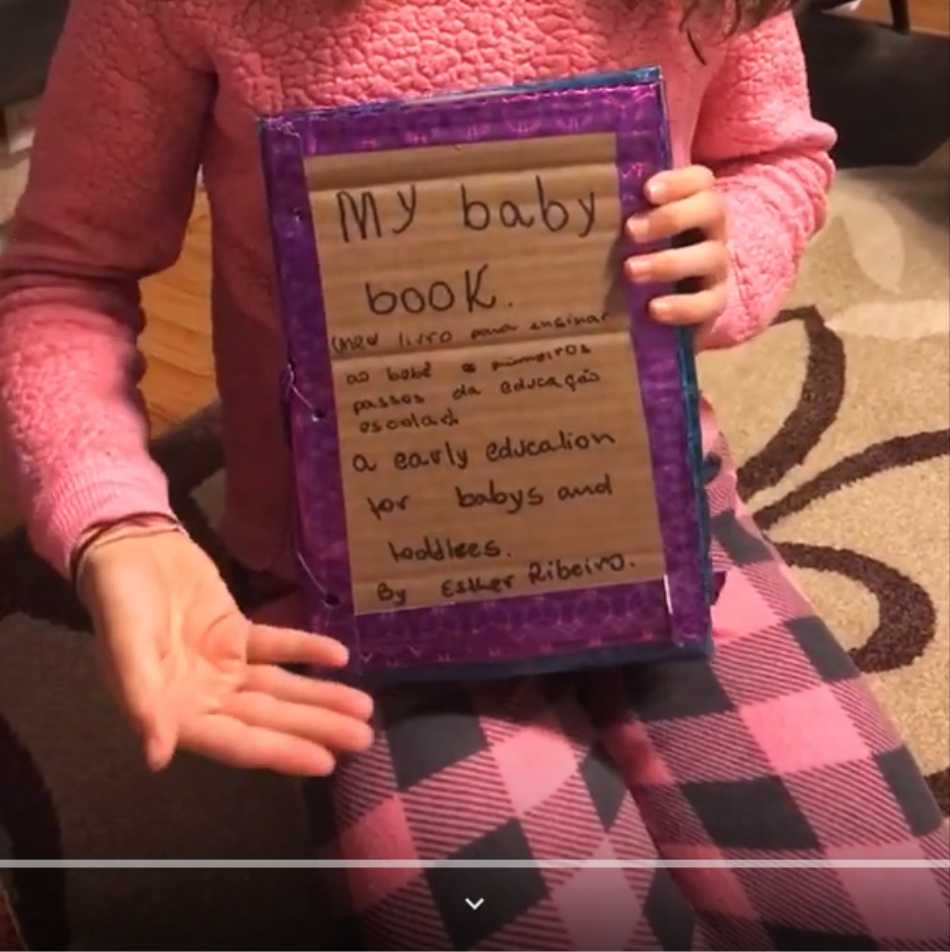 My baby
book.
meu livro para ensinar
ao bebê os primeiros
passos da educação
escolar.
a early education
for babys and
toddlees.
By Esther Ribeiro.